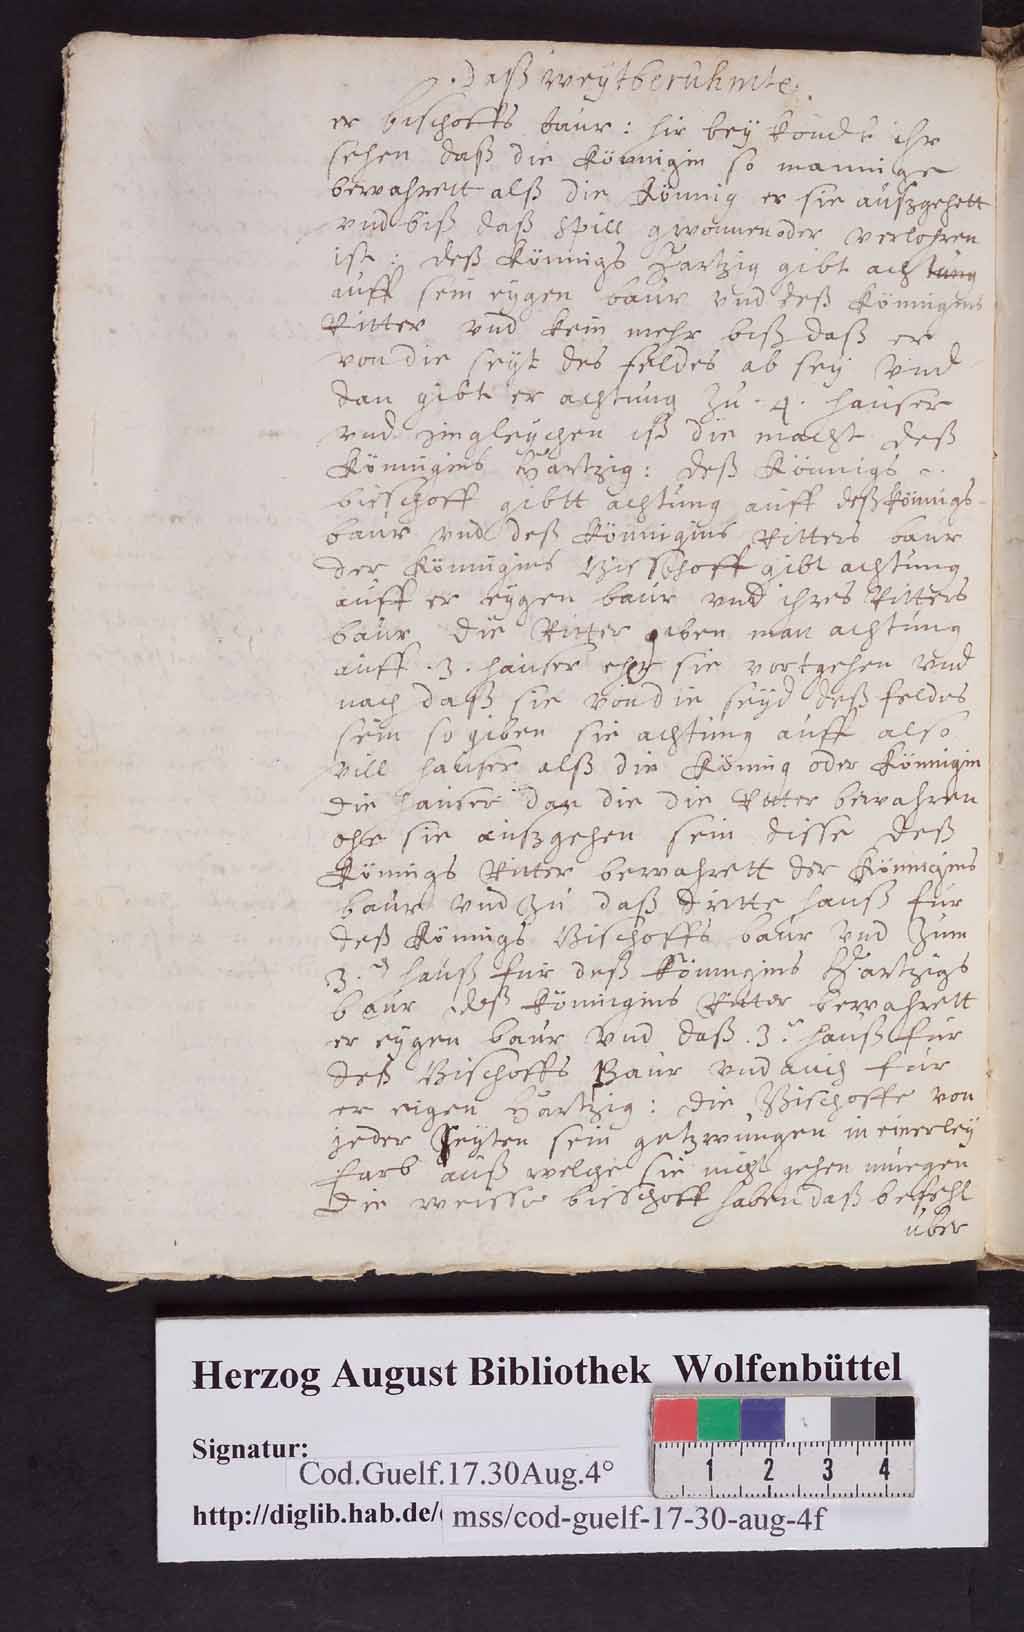 Daß weytberuhmte.
er bischoffs baur: hir bey kondt ihr
sehen daß die Könnigin so mannige
bewahrett alß die Könnig er sie außgehett
vnd biß daß spill gwonnen oder verlohren
ist: deß Könnigs Hartzig gibt achtung
auff sein eygen baur vnd deß Könnigins
Ritter vnd kein mehr biß daß er
von die seyt des feldes ab sey vnd
dan gibt er achtung zu .4. hauser
vnd ingleychen iß die macht deß
Könnigins Hartzig: deß Könnigs
bisschoff gibtt achtung auff deß Könnigs
baur vnd deß Könnigins Ritters baur
der Könnigins Bisschoff gibt achtung
auff er eygen baur vnd ihres Ritters
baur die Ritter giben man achtung
auff .3. hauser ehr sie vortgehen vnd
nach daß sie von die seyd deß feldes
sein so giben sie achtung auff also
vill hauser alß die Könnig oder Könnigin
die hauser dan die die Ritter bewahren
ehe sie außgehen sein disse deß
Könnigs Ritter bewahrett der Könnigins
baur vnd zu daß dritte hauß fur
deß Könnigs Bischoffs baur vnd zum
3. hauß fur deß Könnigins Hartzigs
baur deß Könnigins Ritter bewahrett
er eygen baur vnd daß .3. hauß fur
deß Bischoffs Baur vnd auch fur
er eigen Hartzig: die Bischoffe von
jeder seyten sein getzwungen in einerley
farb auß welche sie nicht gehen muegen
Die weisse bisschoff haben daß befehl
über
Herzog August Bibliothek Wolfenbüttel
Signatur:
Cod.Guelf.17.30Aug.4°
http://diglib.hab.de/ mss/cod-guelf-17-30-aug-4f
1 2 3 4